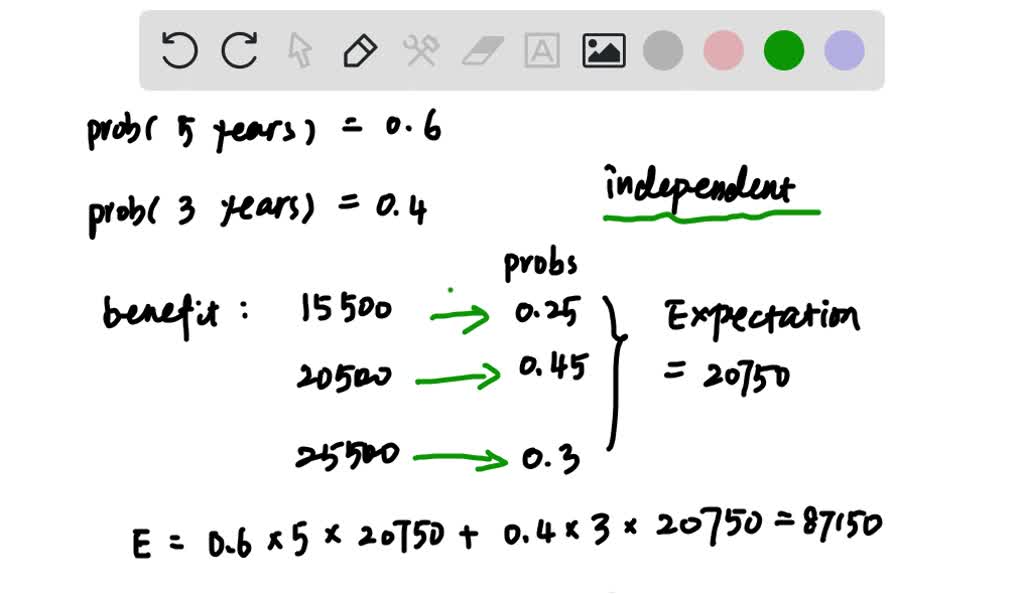 prob( 5 years) = 0.6
independent
prob( 3 years) = 0.4
probs
benefit : 15500 → 0.25 Expectation
20500 → 0.45 = 20750
25500 → 0.3
E = 0.6 × 5 × 20750 + 0.4 × 3 × 20750 = 87150